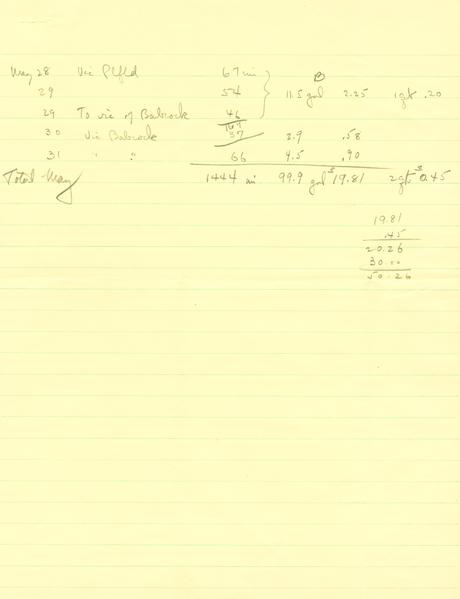 May 28 Vic Plfld 67 mi
29 54 11.5 gal 2.25 1 qt .20
29 To vic of Babcock 46
167
30 Vic Babcock 37 2.9 .58
31 " " 66 4.5 .90
Total May 1444 mi 99.9 gal $19.81 2 qts $0.45
19.81
.45
20.26
30.00
50.26